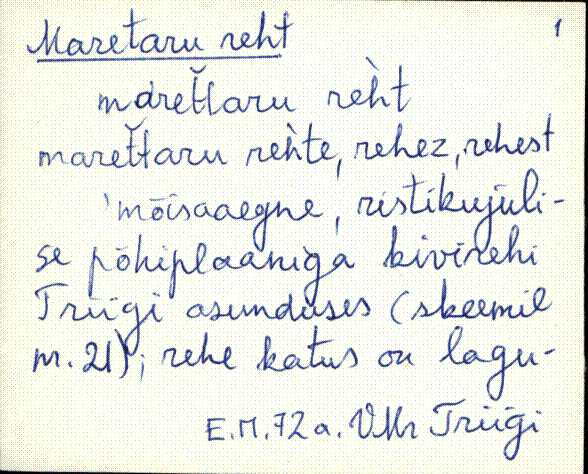 Maretaru reht 1
mareťťaru rèht
mareťťaru rèhte, rehez, rehest
'mõisaaegne, ristikujuli-
se põhiplaaniga kivirehi
Triigi asunduses (skeemil
nr. 21); rehe katus on lagu-
E.M. 72 a. VMr Triigi